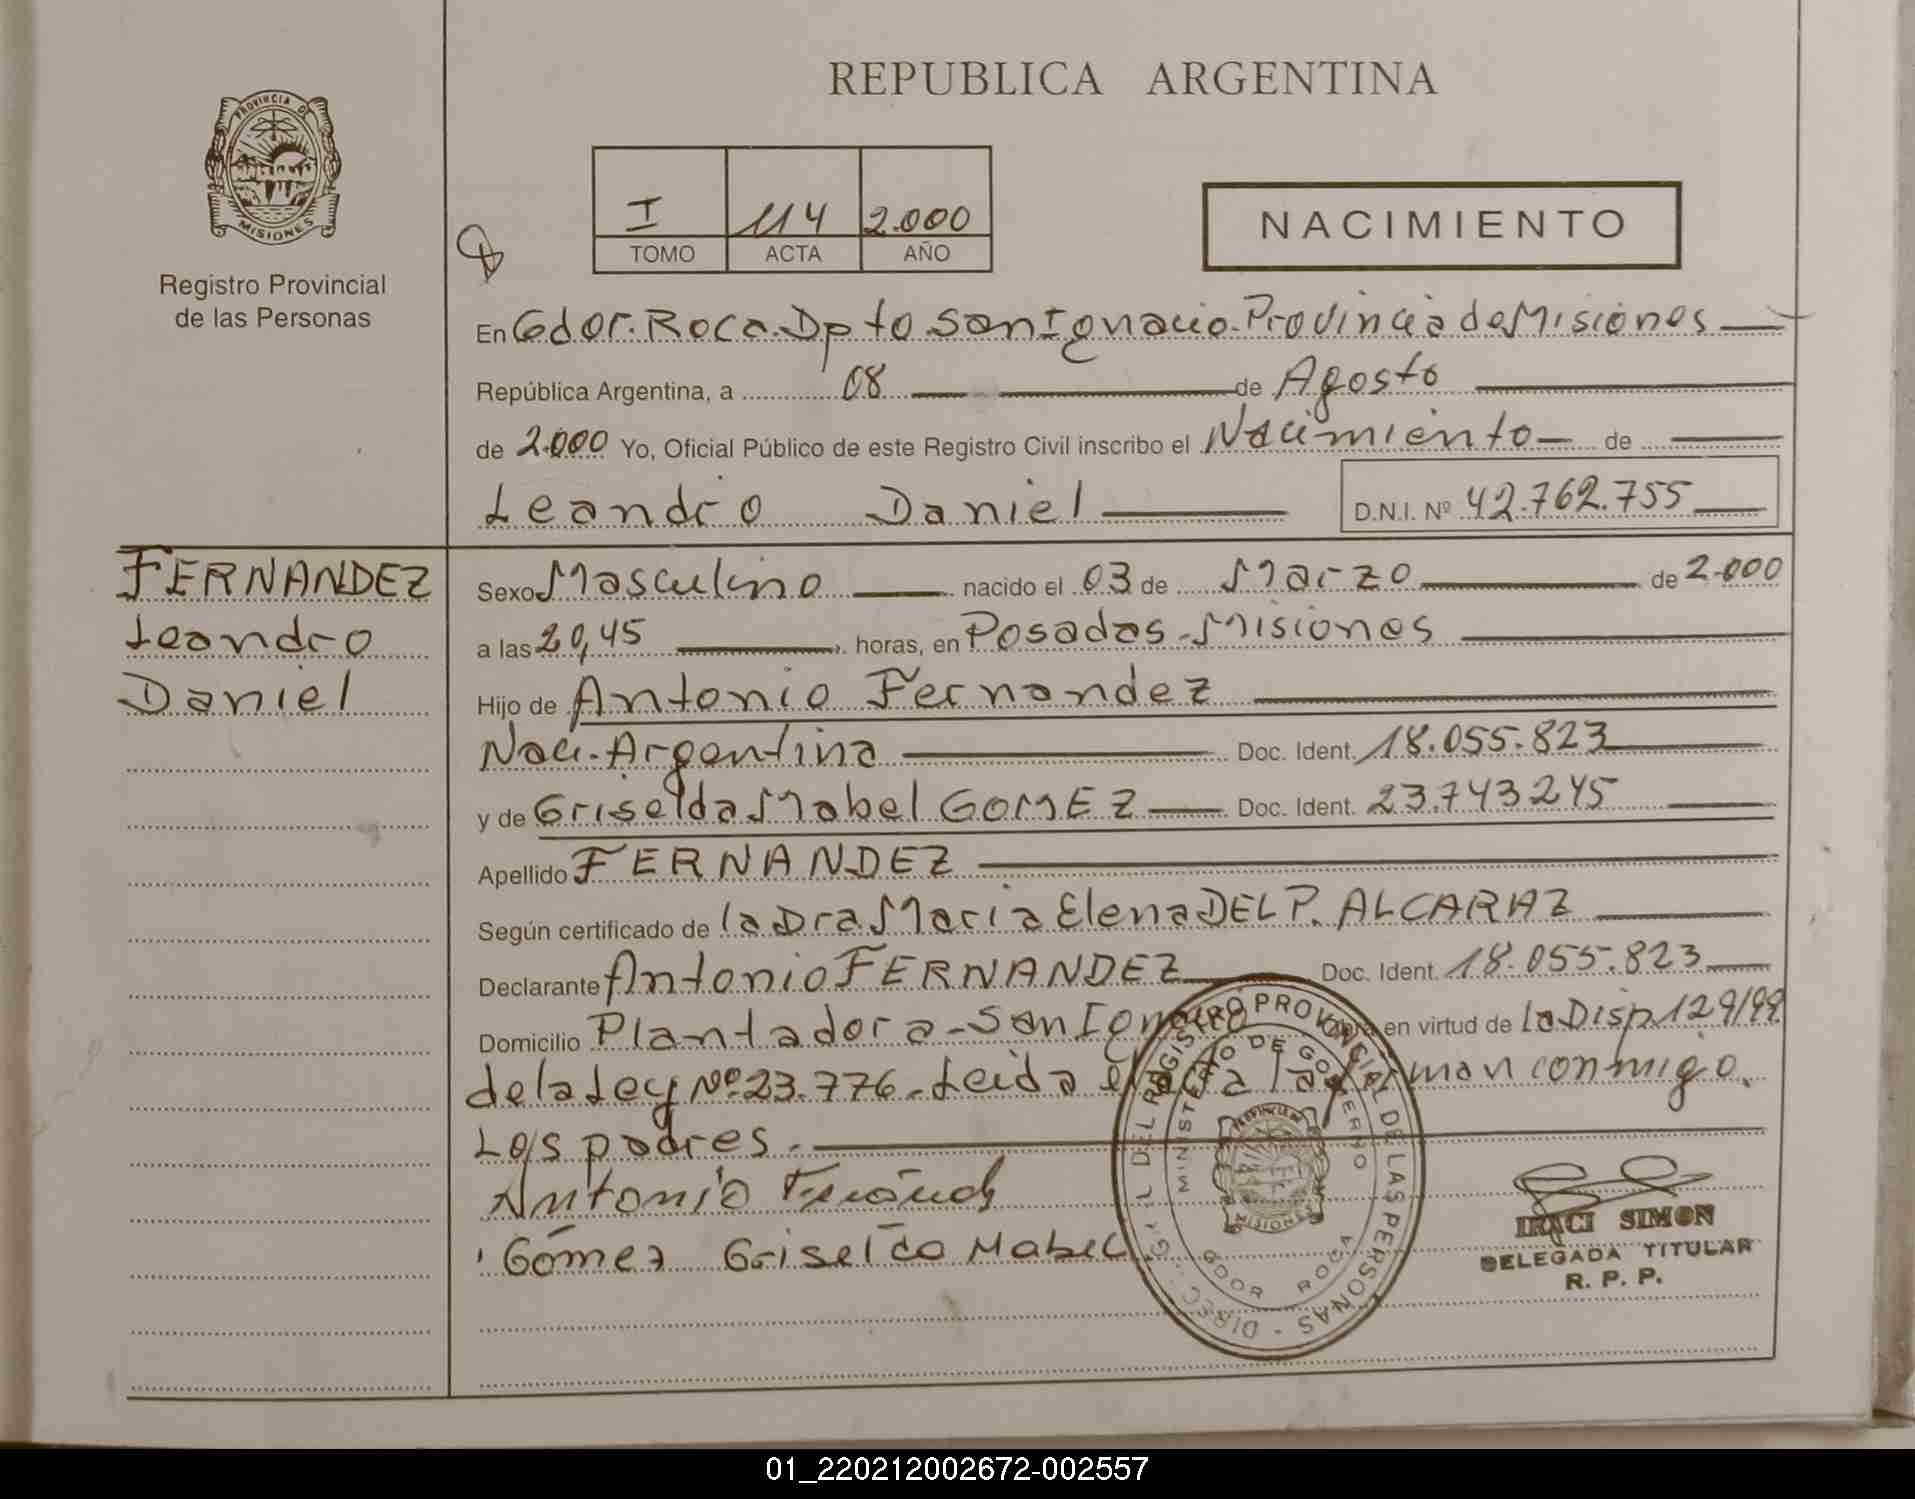 REPUBLICA ARGENTINA
PROVINCIA DE MISIONES
Registro Provincial
de las Personas
I 114 2.000
TOMO ACTA AÑO
NACIMIENTO
En Gdor. Roca. Dpto San Ignacio. Provincia de Misiones
República Argentina, a 08 de Agosto
de 2.000 Yo, Oficial Público de este Registro Civil inscribo el Nacimiento de
Leandro Daniel D.N.I. Nº 42.762.755
FERNANDEZ
Leandro
Daniel
Sexo Masculino nacido el 03 de Marzo de 2.000
a las 20,45 horas, en Posadas - Misiones
Hijo de Antonio Fernandez
Naci. Argentina Doc. Ident. 18.055.823
y de Griselda Mabel GOMEZ Doc. Ident. 23.743245
Apellido FERNANDEZ
Según certificado de la Dra Maria Elena DEL P. ALCARAZ
Declarante Antonio FERNANDEZ Doc. Ident. 18.055.823
Domicilio Plantadora - San Ignacio Obra en virtud de la Disp. 129/99
de la Ley Nº 23.776. Leida el acta la firman conmigo.
Los padres.
Antonio
Gómez Griselda Mabel
DIREC. GRAL. DEL REGISTRO PROVINCIAL DE LAS PERSONAS
MINISTERIO DE GOBIERNO
MISIONES
GDOR ROCA
IRACI SIMON
DELEGADA TITULAR
R. P. P.
01_220212002672-002557